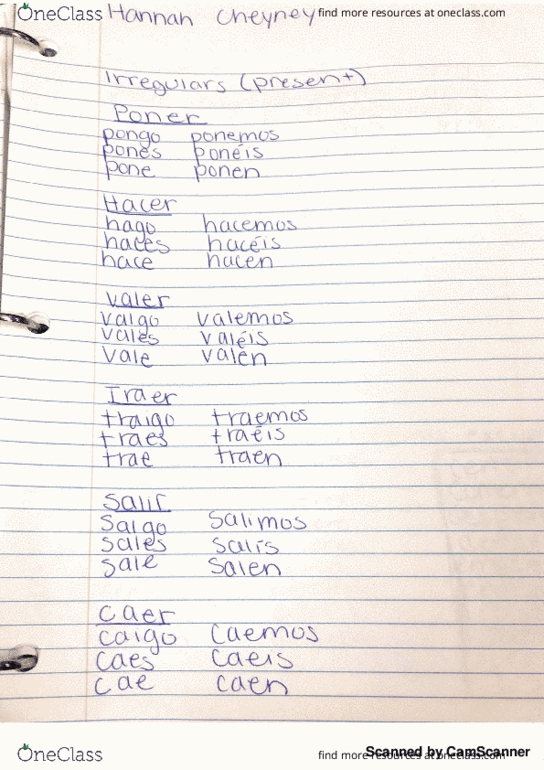 OneClass Hannah Cheyney find more resources at oneclass.com
Irregulars (present)
Poner
pongo ponemos
pones ponéis
pone ponen
Hacer
hago hacemos
haces hacéis
hace hacen
valer
valgo valemos
vales valéis
vale valen
Traer
traigo traemos
traes traéis
trae traen
Salir
Salgo Salimos
sales salís
sale salen
caer
caigo caemos
caes caeis
cae caen
OneClass find more resources at oneclass.com
Scanned by CamScanner